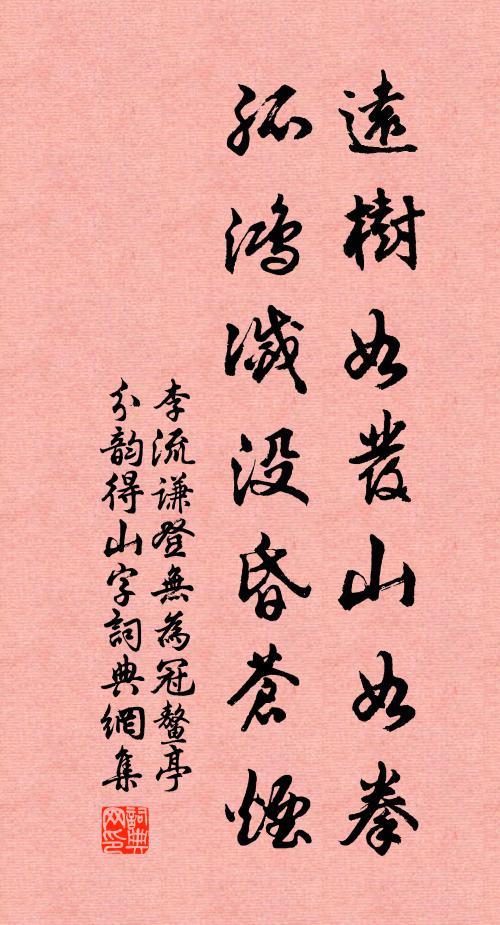 遠樹如發山如拳
孤鴻滅没昏蒼煙
李流謙登無為冠鼇亭
分韻得山字詞典網集
詞典网印